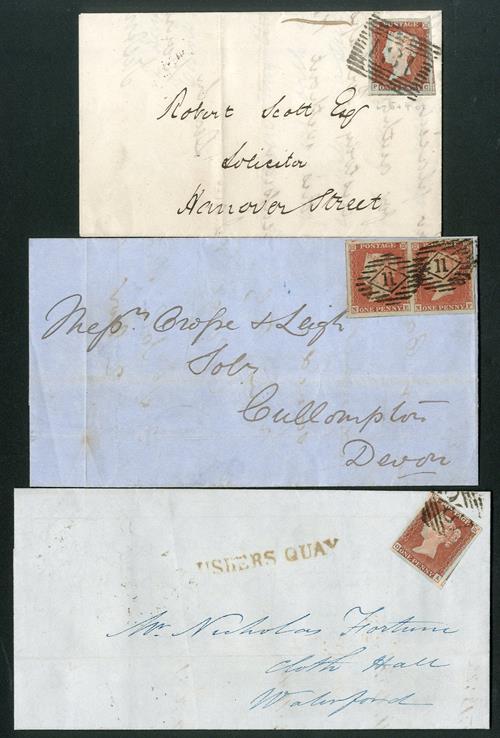 POSTAGE
ONE PENNY
Robert Scott Esq
Solicitor
Hanover Street
POSTAGE
POSTAGE
11
11
ONE PENNY
ONE PENNY
Messrs Crosse & Leigh
Solrs
Cullompton
Devon
POSTAGE
ONE PENNY
USHERS QUAY
Mr Nicholas Fortune
Cloth Hall
Waterford